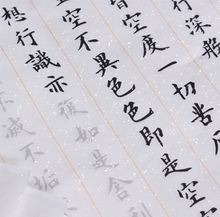 行深般
皆空度一切苦
空不異色色即是空
想行識亦復如是舍利
不滅不垢